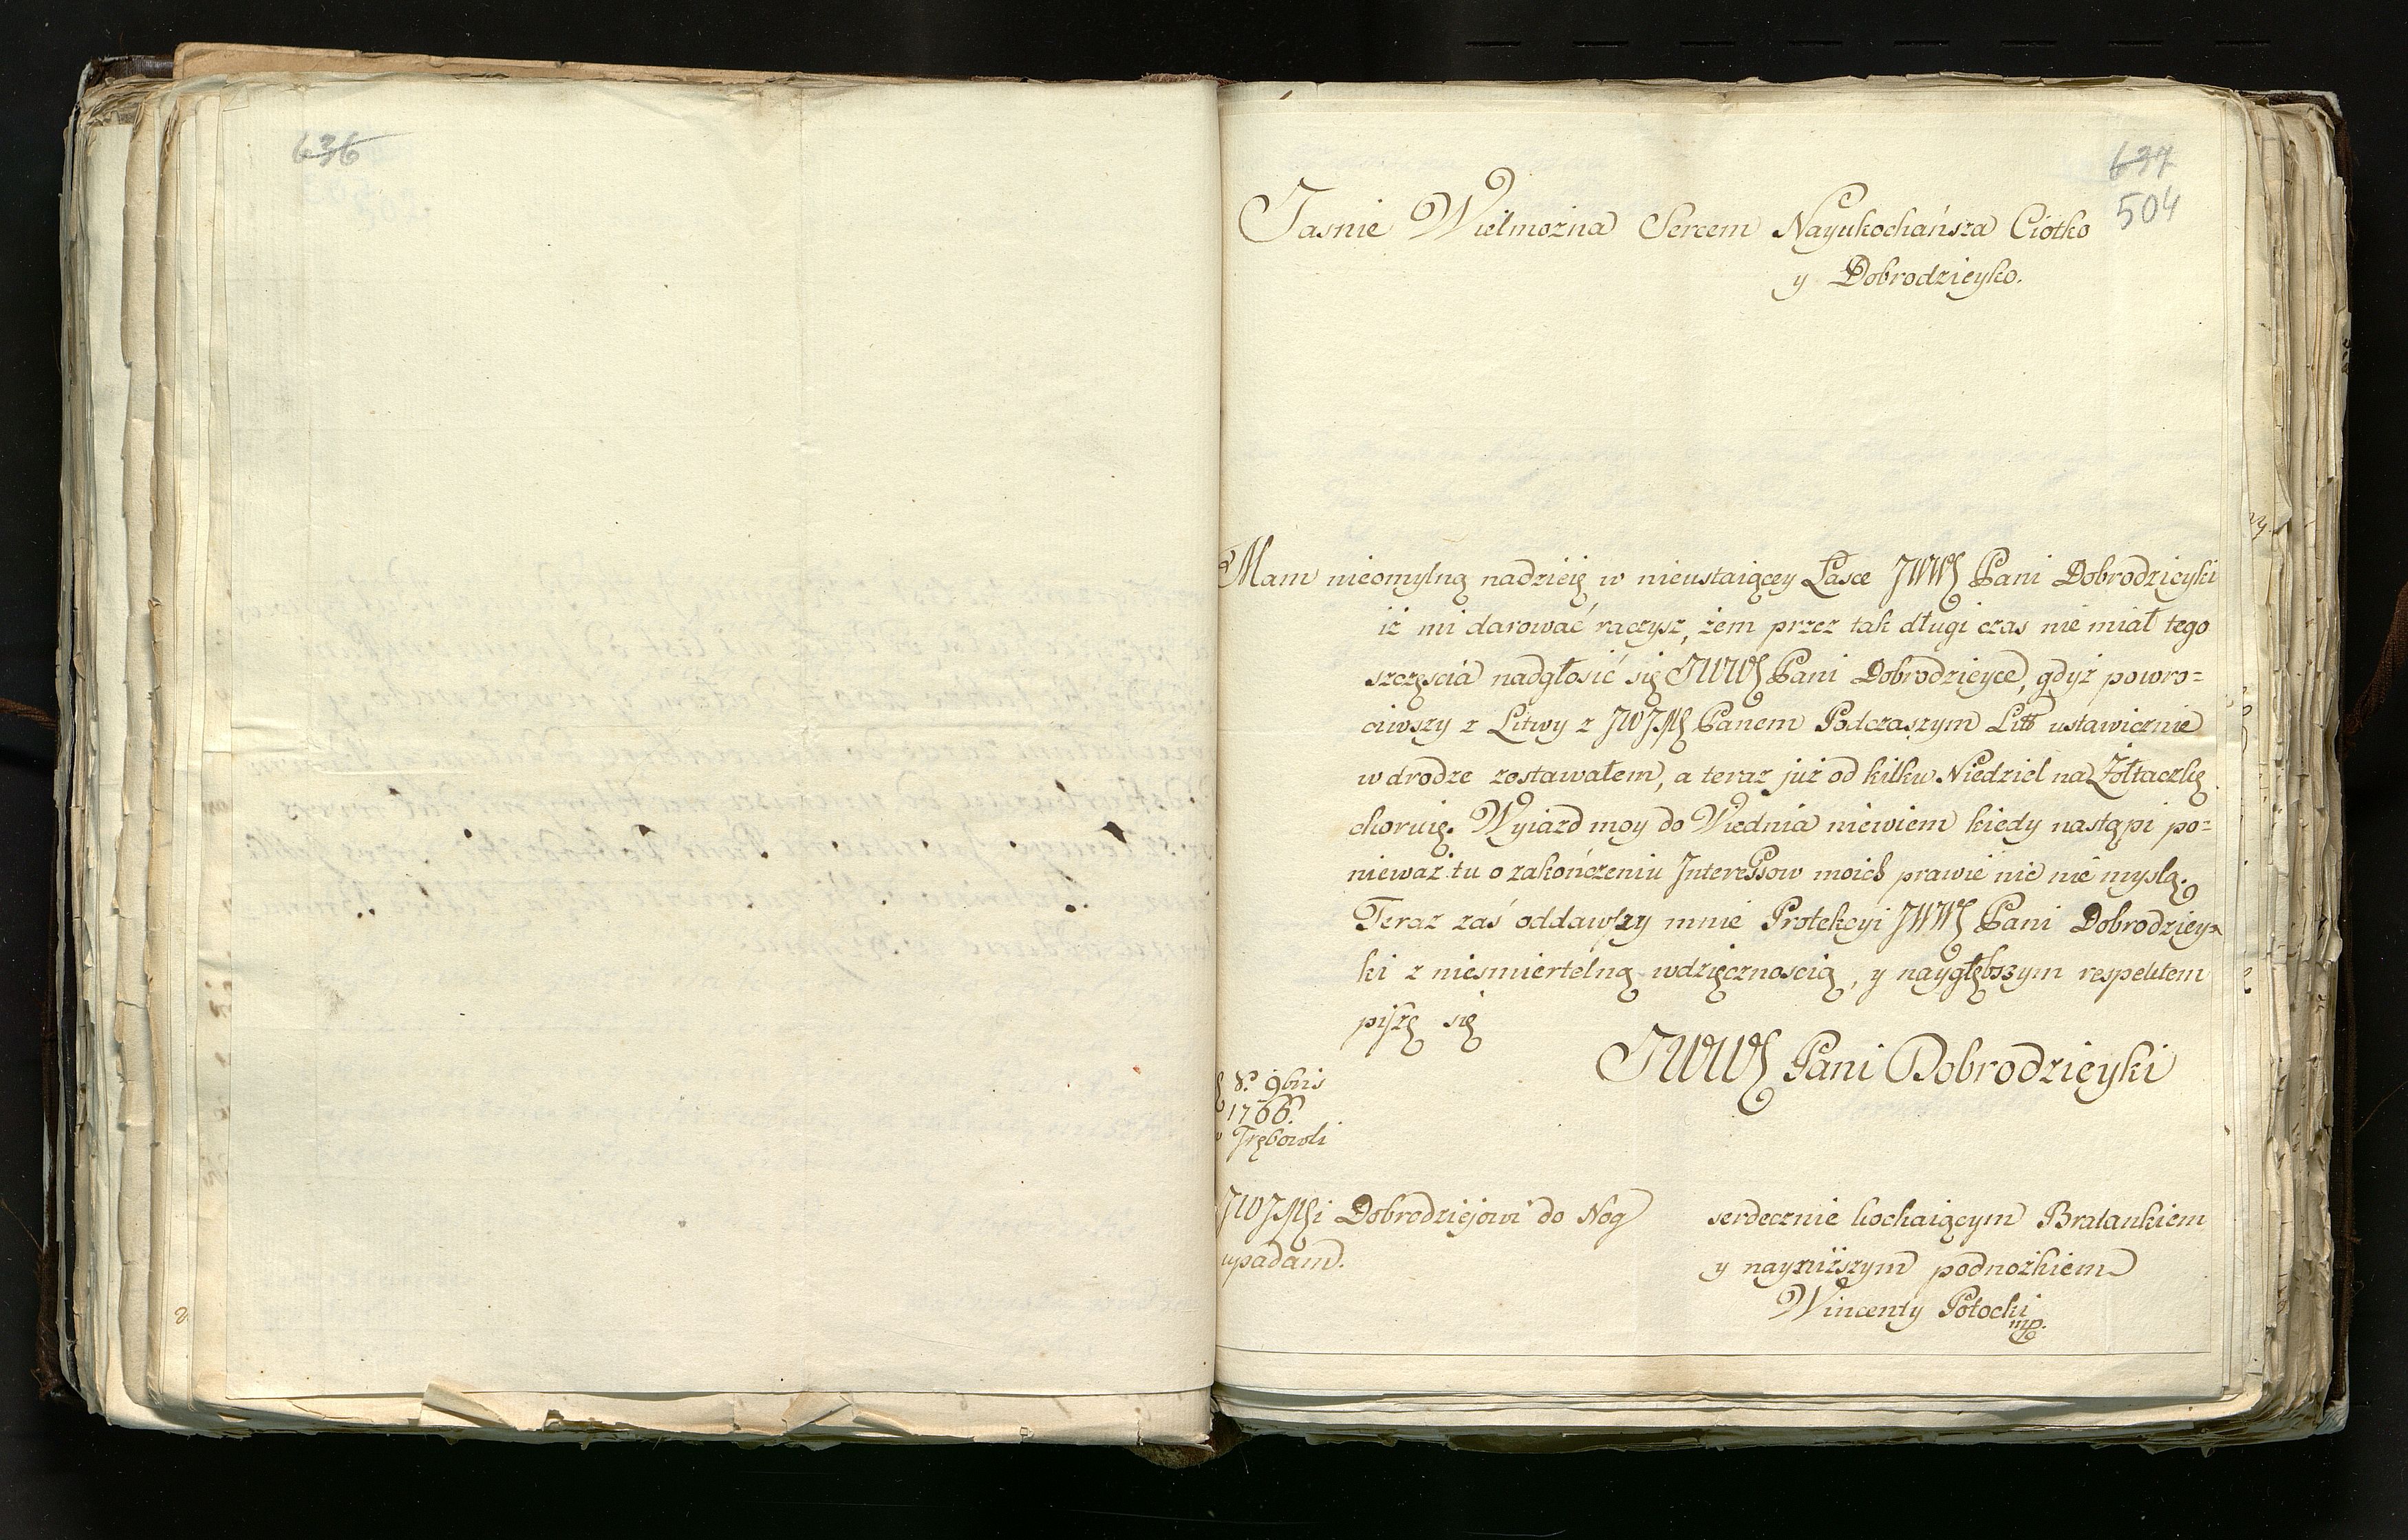 636
637
504
Jasnie Wielmożna Sercem Nayukochańsza Ciotko
y Dobrodzieyko.
Mam nieomylną nadzieię w nieustaiącey Łasce JWWJ Pani Dobrodzieyki
iż mi darować raczysz, żem przez tak długi czas nie miał tego
szczęscia nadgłosić się JWWJ Pani Dobrodzieyce, gdyż powro=
ciwszy z Litwy z JWJM Panem Podczaszym Litt ustawicznie
w drodze zostawałem, a teraz już od kilku Niedziel na Żołtaczkę
choruię. Wyiazd moy do Wiednia niewiem kiedy nastąpi po=
nieważ tu o zakończeniu Interessow moich prawie nic nie myslą.
Teraz zaś oddawszy mnie Protekcyi JWWJ Pani Dobrodziey=
ki z niesmiertelną wdzięcznoscią, y naygłębszym respektem
piszę się
JWWJ Pani Dobrodzieyki
8º 9bris
1766º
Trębowli
JWJMi Dobrodziejowi do Nog
upadam.
serdecznie kochaiącym Bratankiem
y nayniższym podnożkiem
Wincenty Potocki
mp.